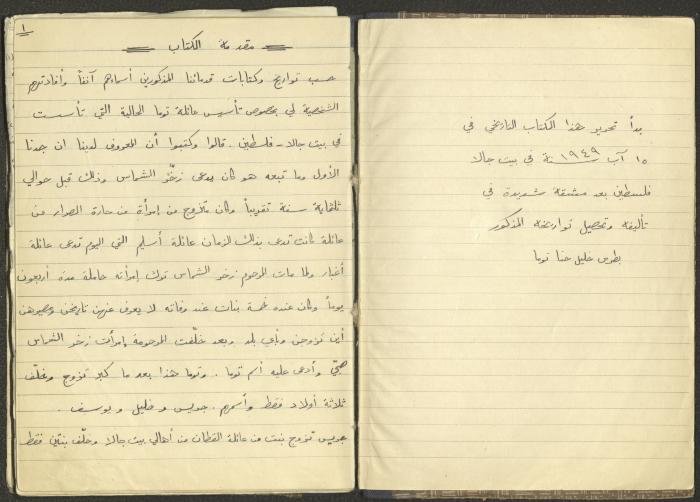 بدأ تحرير هذا الكتاب التاريخي في
١٥ آب سنة ١٩٤٩ في بيت جالا
فلسطين بعد مشقة شديدة في
تأليفه وتحصيل تواريخه المذكور
بطرس خليل حنا توما
١
مقدمة الكتاب
حسب تواريخ وكتابات قدمائنا المذكورين أسماءهم آنفاً وأفادتهم
الشخصية لي بخصوص تأسيس عائلة توما الحالية التي تأسست
في بيت جالا - فلسطين. قالوا وكتبوا أن المعروف لدينا ان جدنا
الأول وما تبعه هو كان يدعى زخّو الشماس وذلك قبل حوالي
ثلثماية سنة تقريباً وكان متزوج من إمرأة من حارة الصرار من
عائلة كانت تدعى بذلك الزمان عائلة أسليم التي اليوم تدعى عائلة
أغبار ولما مات المرحوم زخو الشماس ترك إمرأته حاملة مدة أربعون
يوماً وكان عنده خمسة بنات عند وفاته لا يعرف عنهن تاريخهن ومصيرهن
أين تزوجن وبأي بلد وبعد خلّفت المرحومة إمرأت زخو الشماس
صبّي وأدعى عليه أسم توما. وتوما هذا بعد ما كبر تزوج وخلّف
ثلاثة أولاد فقط وأسمهم. جريس و خليل و يوسف.
جريس تزوج بنت من عائلة القطان من أهالي بيت جالا وخلّف بنتين فقط